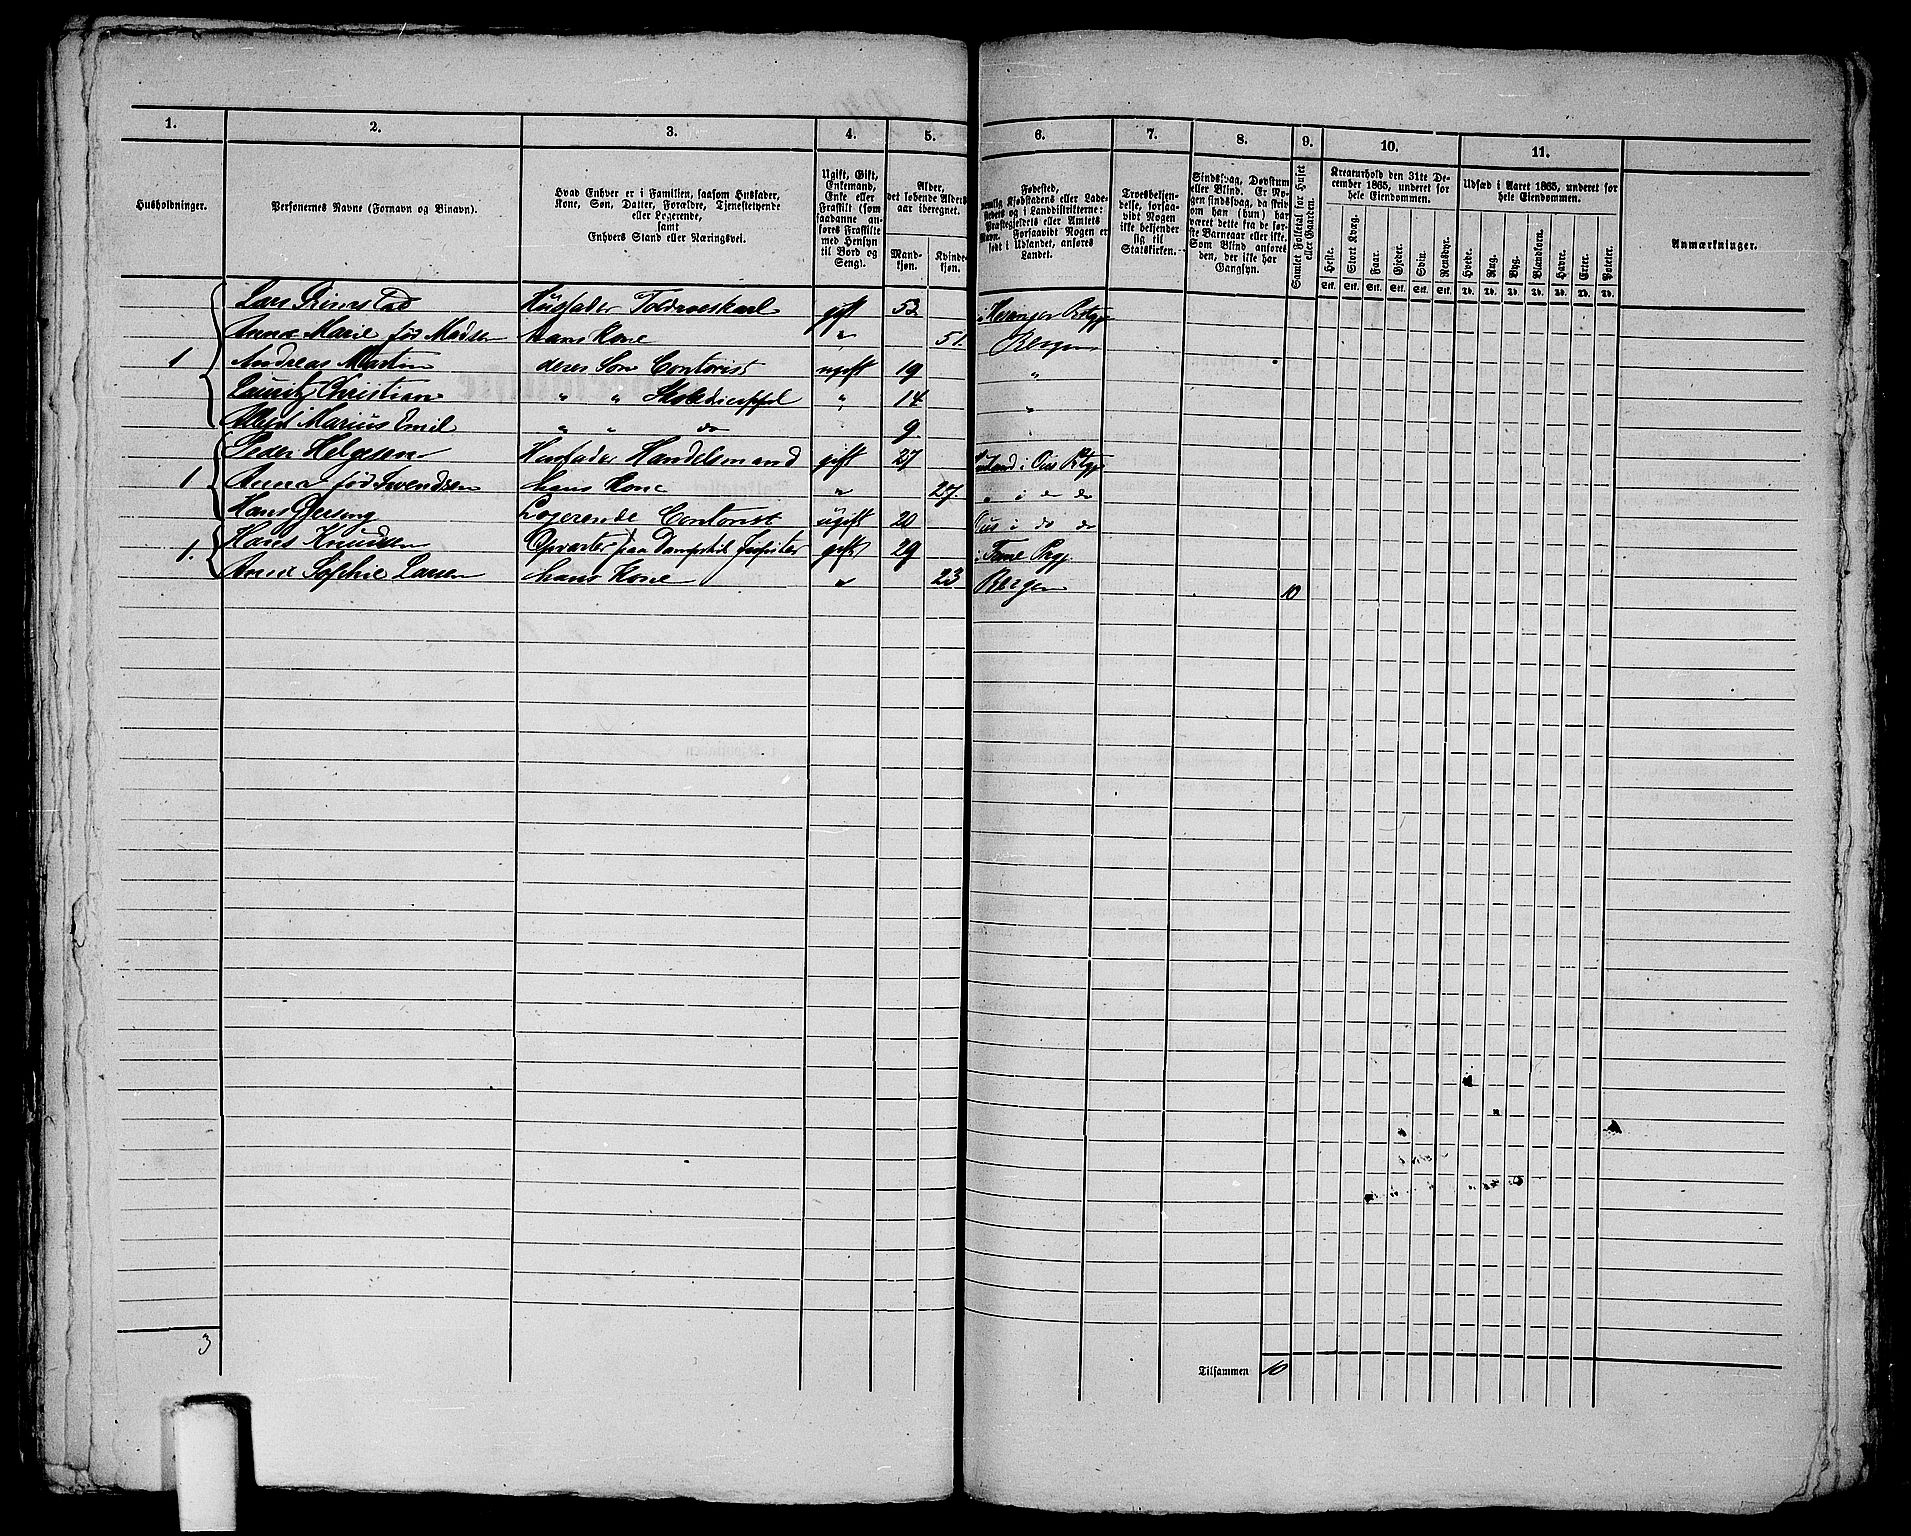 1. 2. 3. 4. 5. 6. 7. 8. 9. 10. 11.
Husholdninger.
Personernes Navne (Fornavn og Binavn).
Hvad Enhver er i Familien, saasom Husfader,
Kone, Søn, Datter, Forældre, Tjenestetyende
eller Logerende,
samt
Enhvers Stand eller Næringsvei.
Ugift, Gift,
Enkemand,
Enke eller
Fraskilt (som
saadanne an-
føres Fraskilte
med Hensyn
til Bord og
Seng).
Alder,
det løbende Alders-
aar iberegnet.
Mand-
kjøn.
Kvinde-
kjøn.
Fødested,
nemlig Kjøbstadens eller Lade-
stedets og i Landdistrikterne:
Præstegjeldets eller Amtets
Navn. Forsaavidt Nogen er
født i Udlandet, anføres
Landet.
Troesbekjen-
delse, forsaa-
vidt Nogen
ikke bekjender
sig til
Statskirken.
Sindssvag, Døvstum
eller Blind. Er No-
gen sindssvag, da skriv
om han (hun) har
været dette fra de før-
ste Barneaar eller ikke.
Som Blind anføres
den, der ikke har
Gangsyn.
Samlet Folketal for Huset
eller Gaarden.
Kreaturhold den 31te De-
cember 1865, underet for
hele Eiendommen.
Heste. Stort Kvæg. Faar. Gjeder. Svin. Rensdyr.
Stk. Stk. Stk. Stk. Stk. Stk.
Udsæd i Aaret 1865, underet for
hele Eiendommen.
Hvede. Rug. Byg. Blandkorn. Havre. Erter. Poteter.
Td. Td. Td. Td. Td. Td. Td.
Anmærkninger.
Lars Husfader gift 53
Anna Marie født Madsen Hans Kone " 51. Bergen
1 Andreas Martin deres Søn Contorist ugift 19 "
Lauritz Christian " " Skoledicippel " 14 "
Marius Emil " " do 9
Peder Helgesen Husfader Handelsmand gift 27
1 Anna fød Svendsen hans Kone " 27. " i do do
Hans Logerende Contorist ugift 20 Ous i do do
1. Hans Knudsen Opvarter paa Dampskib Jupiter gift 29 i Fane Pgj
Anna Sophie Larsen hans Kone " 23 Bergen 10
3
Tilsammen 10